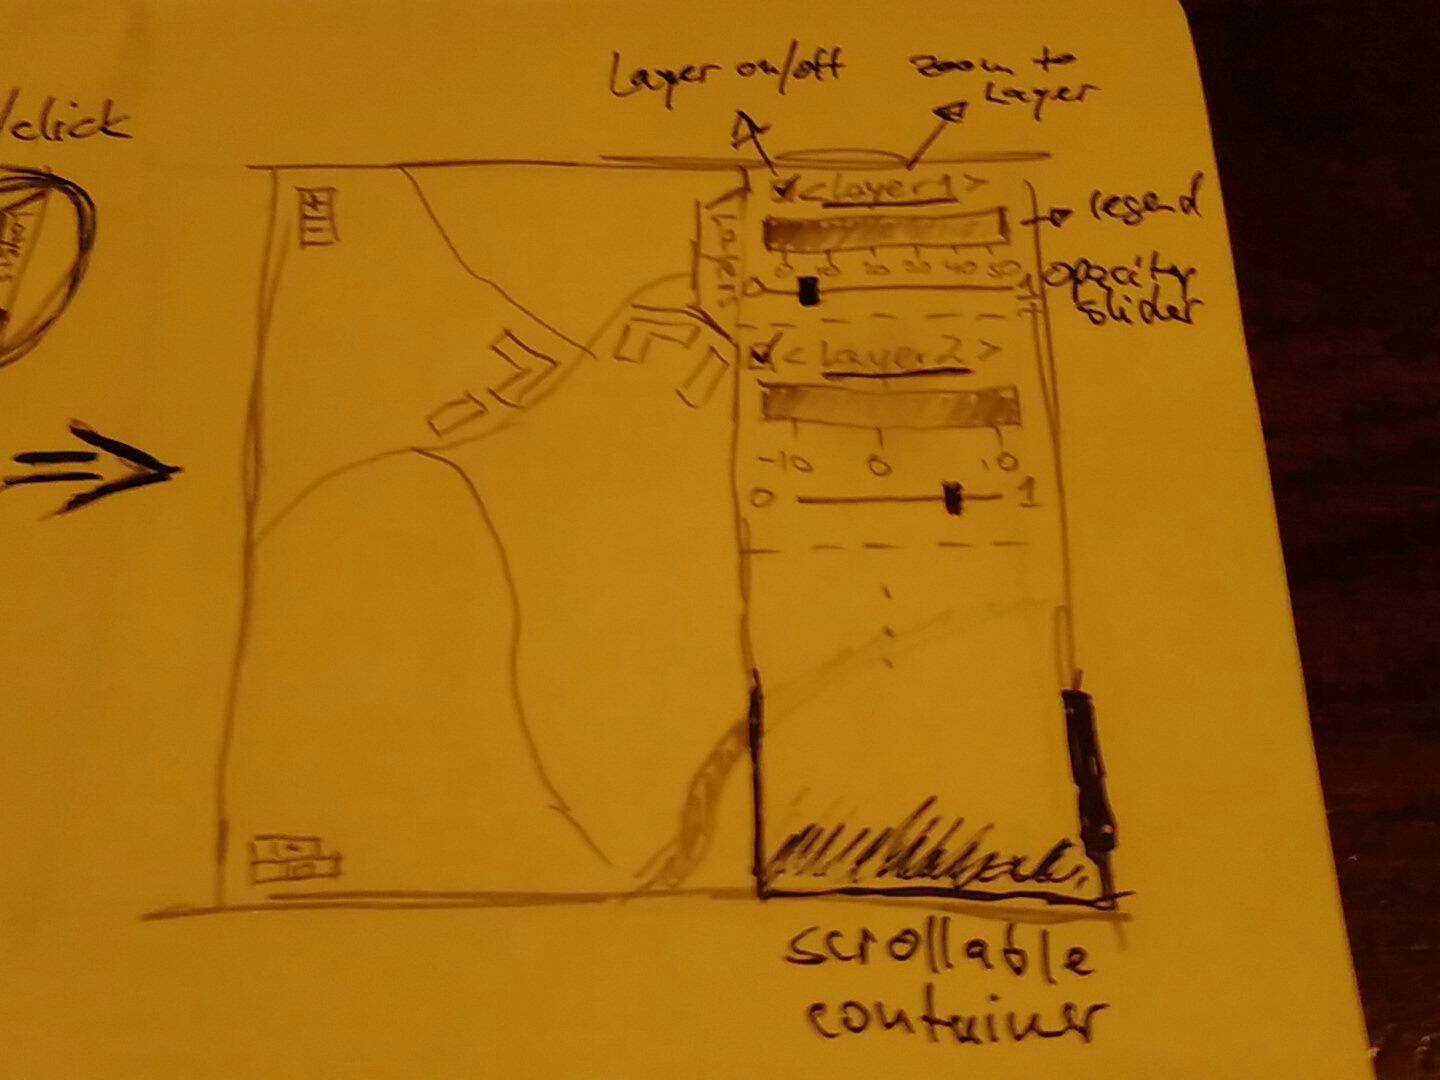 Layer on/off
zoom to
Layer
/click
<Layer1>
legend
Layers
0 10 20 30 40 50
0 1
opacity
slider
<Layer2>
-10 0 10
0 1
Layers
scrollable
container